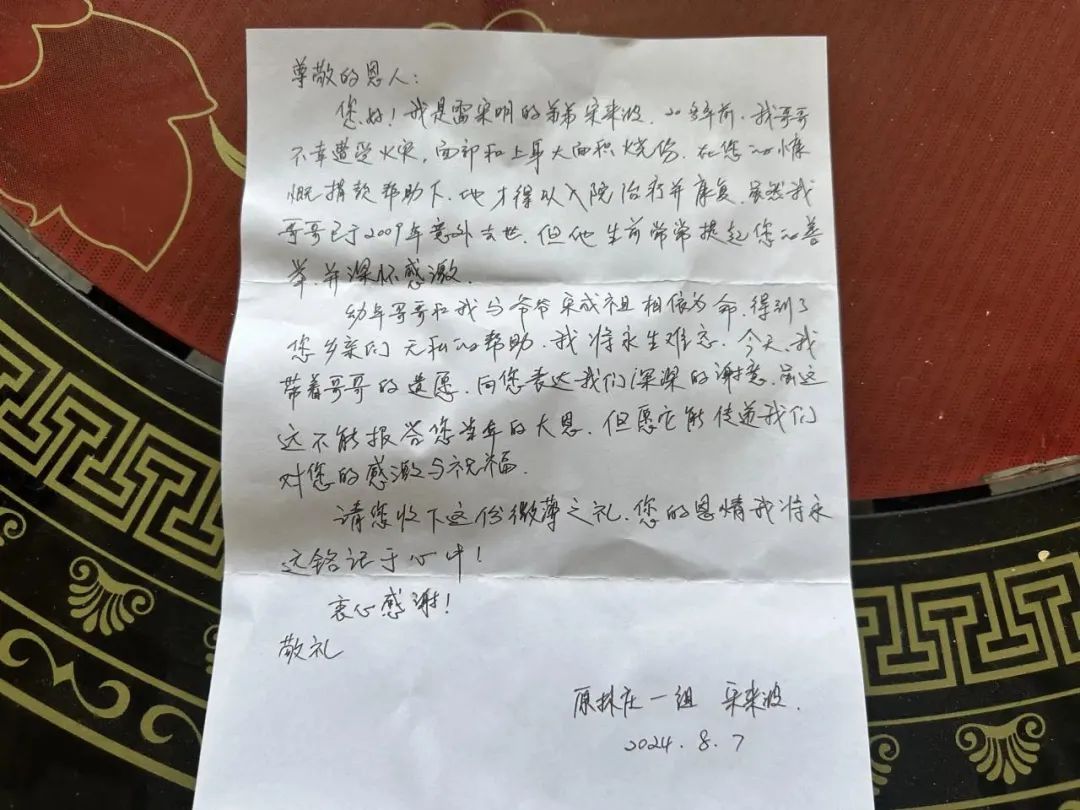 尊敬的恩人：
您好！我是雷宋明的弟弟宋来波，20多年前，我哥哥
不幸遭受火灾，面部和上身大面积烧伤．在您的慷
慨捐款帮助下，他才得以入院治疗并康复．虽然我
哥哥已于2009年意外去世．但他生前常常提起您的善
举．并深怀感激．
幼年哥哥和我与爷爷宋成祖相依为命．得到了
您乡亲们无私的帮助．我将永生难忘．今天．我
带着哥哥的遗愿．向您表达我们深深的谢意．虽这
这不能报答您当年的大恩．但愿它能传递我们
对您的感激与祝福．
请您收下这份微薄之礼．您的恩情我将永
远铭记于心中！
衷心感谢！
敬礼
原林庄一组 宋来波．
2024.8.7